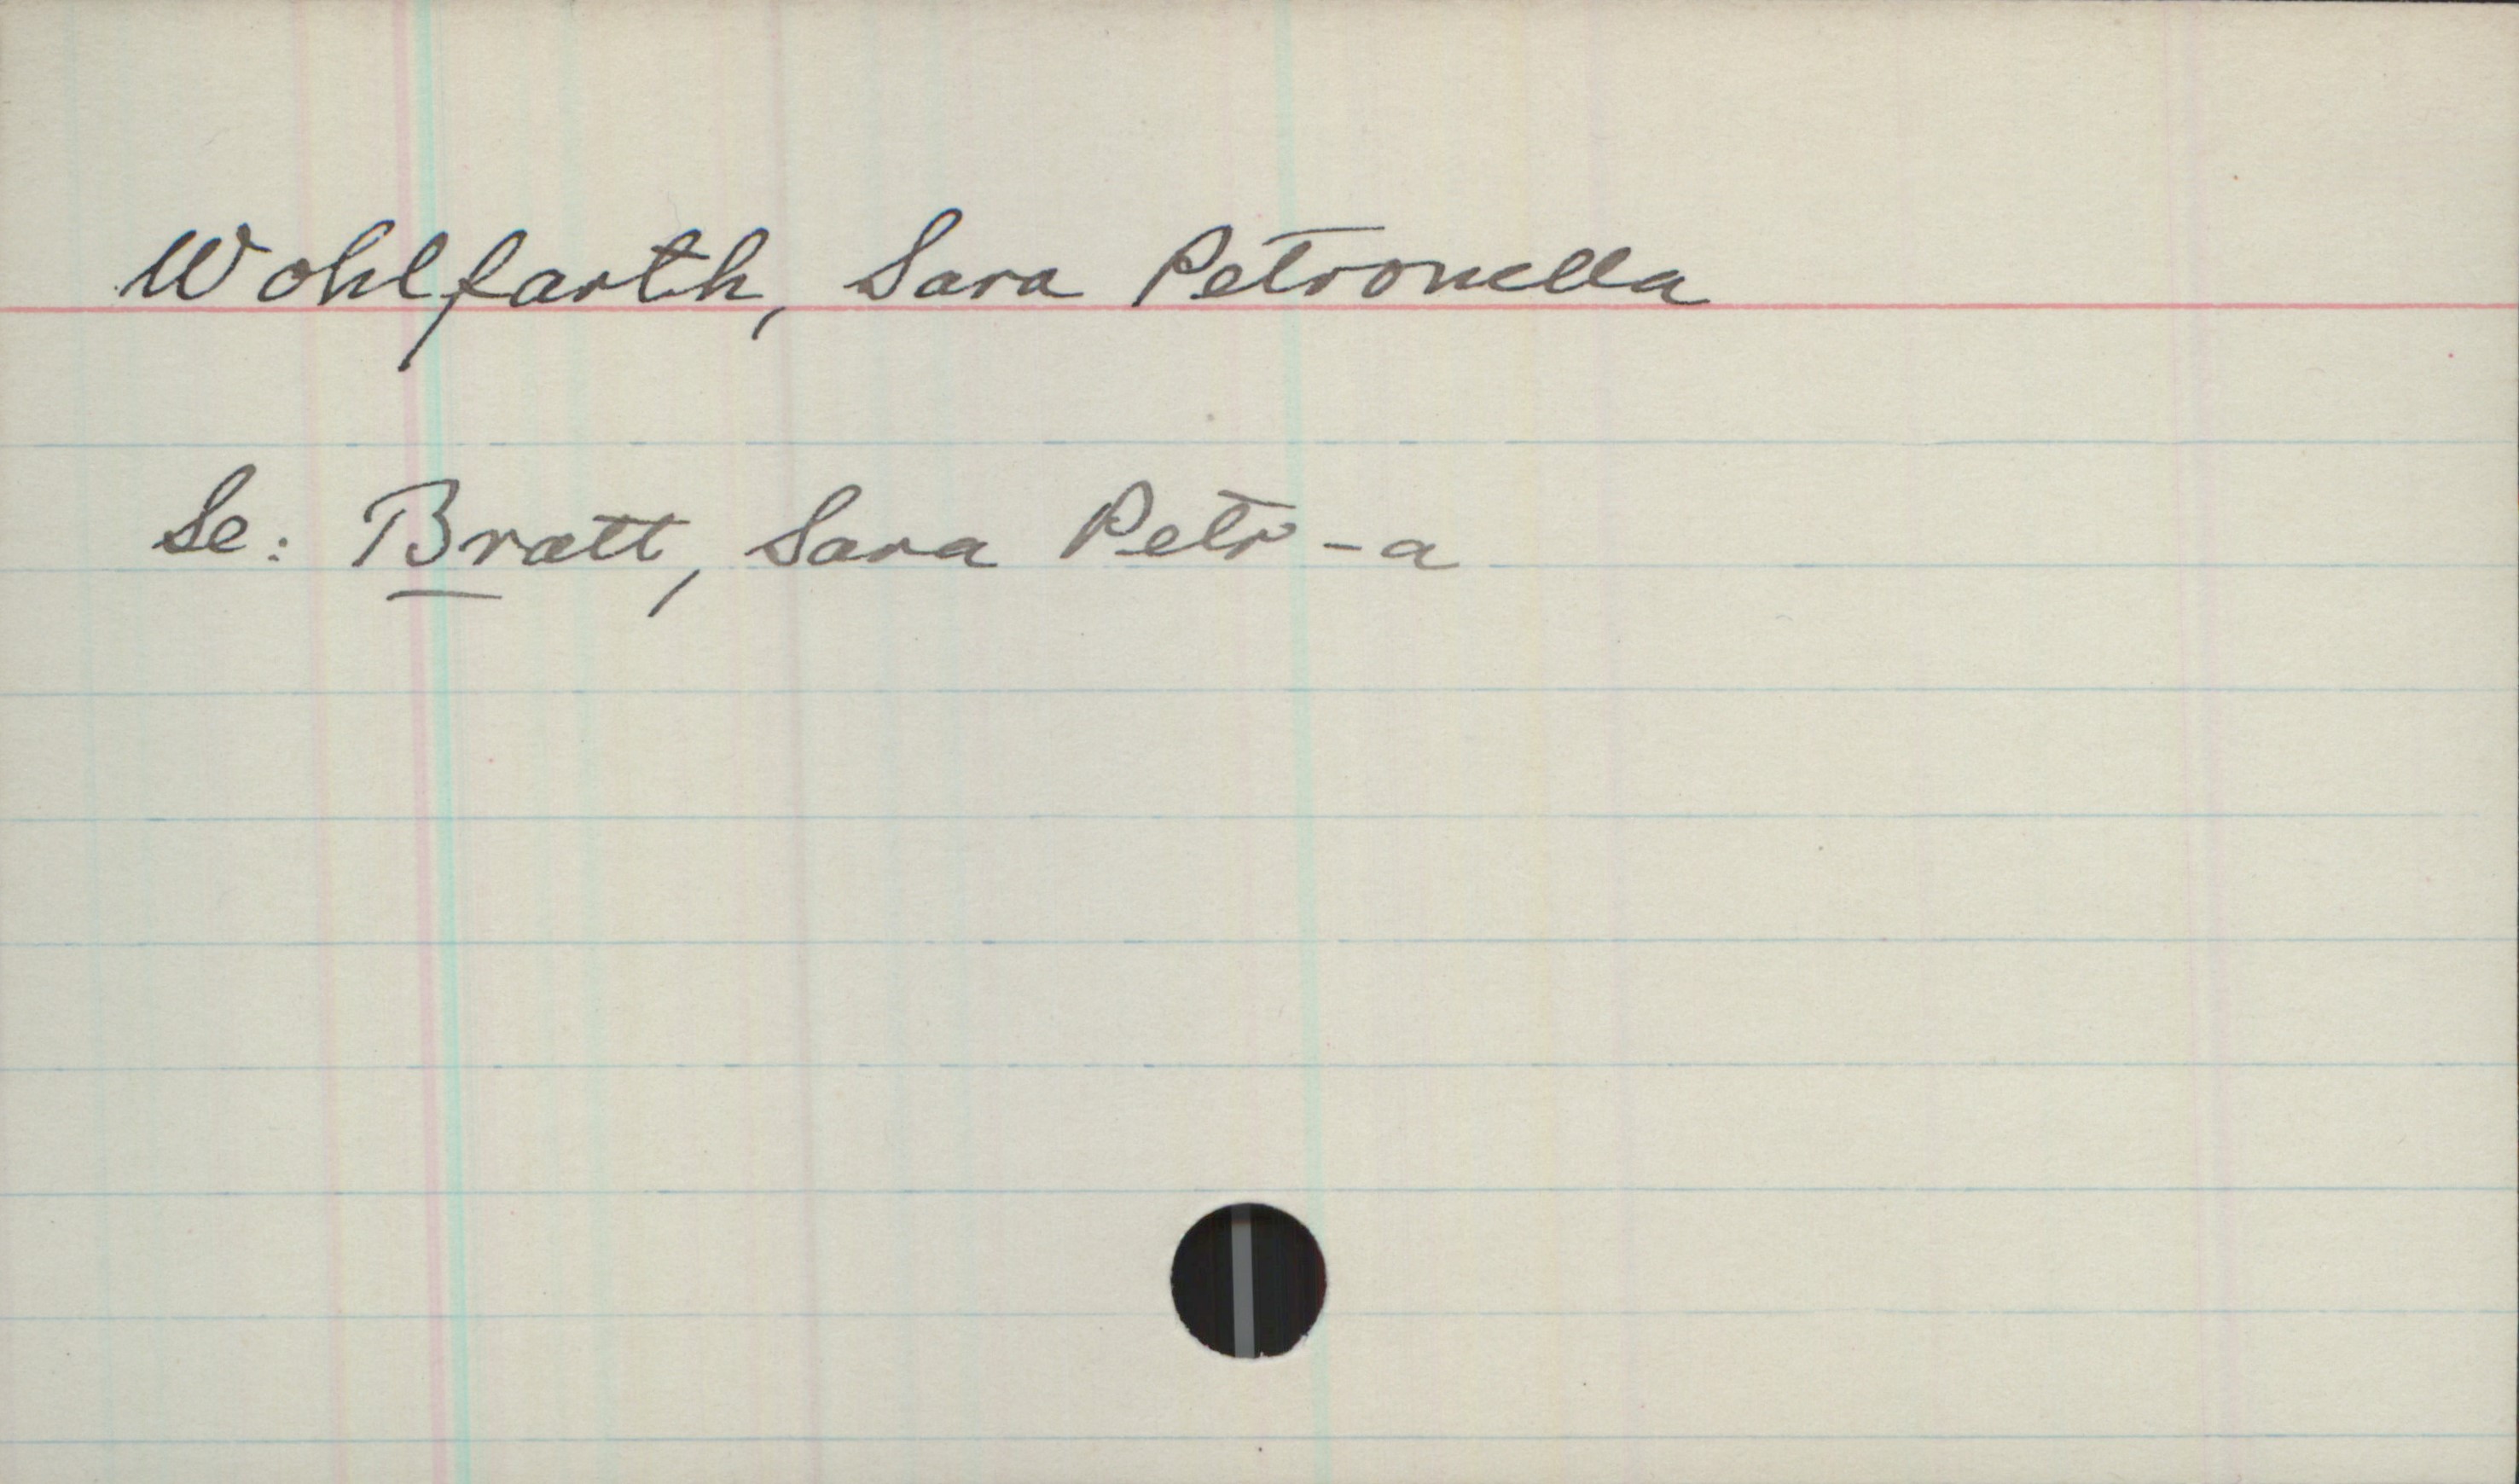 Wohlfarth, Sara Petronella
Se: Bratt, Sara Petr-a